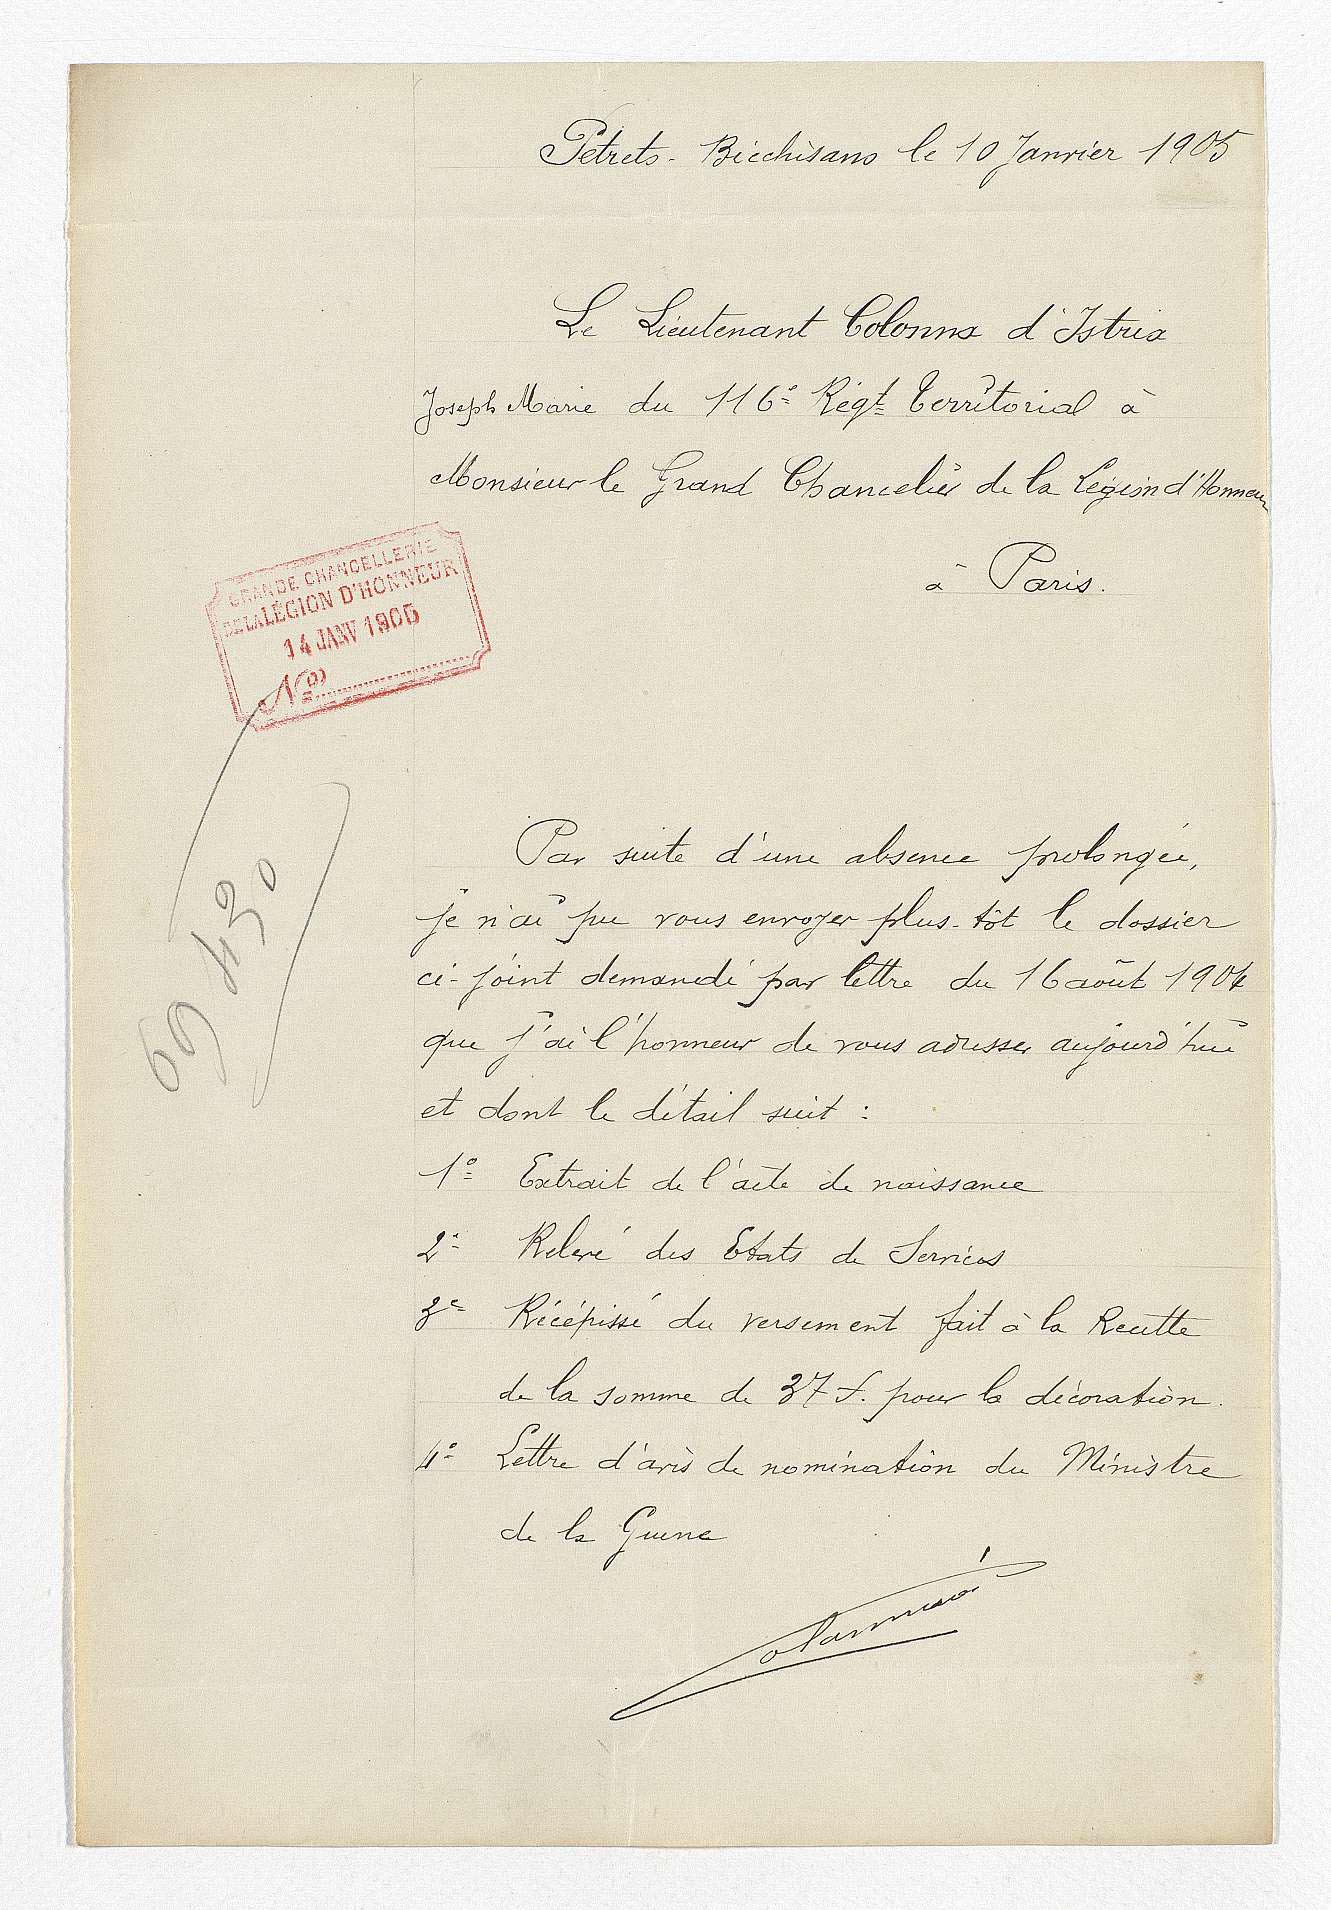 Petreto-Bicchisano le 10 Janvier 1905
Le Lieutenant Colonna d'Istria
Joseph Marie du 116e Régt Territorial à
Monsieur le Grand Chancelier de la Légion d'Honneur
à Paris.
GRANDE CHANCELLERIE
DE LA LÉGION D'HONNEUR
14 JANV 1905
No
69430
Par suite d'une absence prolongée,
je n'ai pu vous envoyer plus-tôt le dossier
ci-joint demandé par lettre du 16 août 1904
que j'ai l'honneur de vous adresser aujourd'hui
et dont le détail suit :
1o Extrait de l'acte de naissance
2o Relevé des Etats de Services
3o Récépissé du versement fait à la Recette
de la somme de 37 f. pour la décoration.
4o Lettre d'avis de nomination du Ministre
de la Guerre